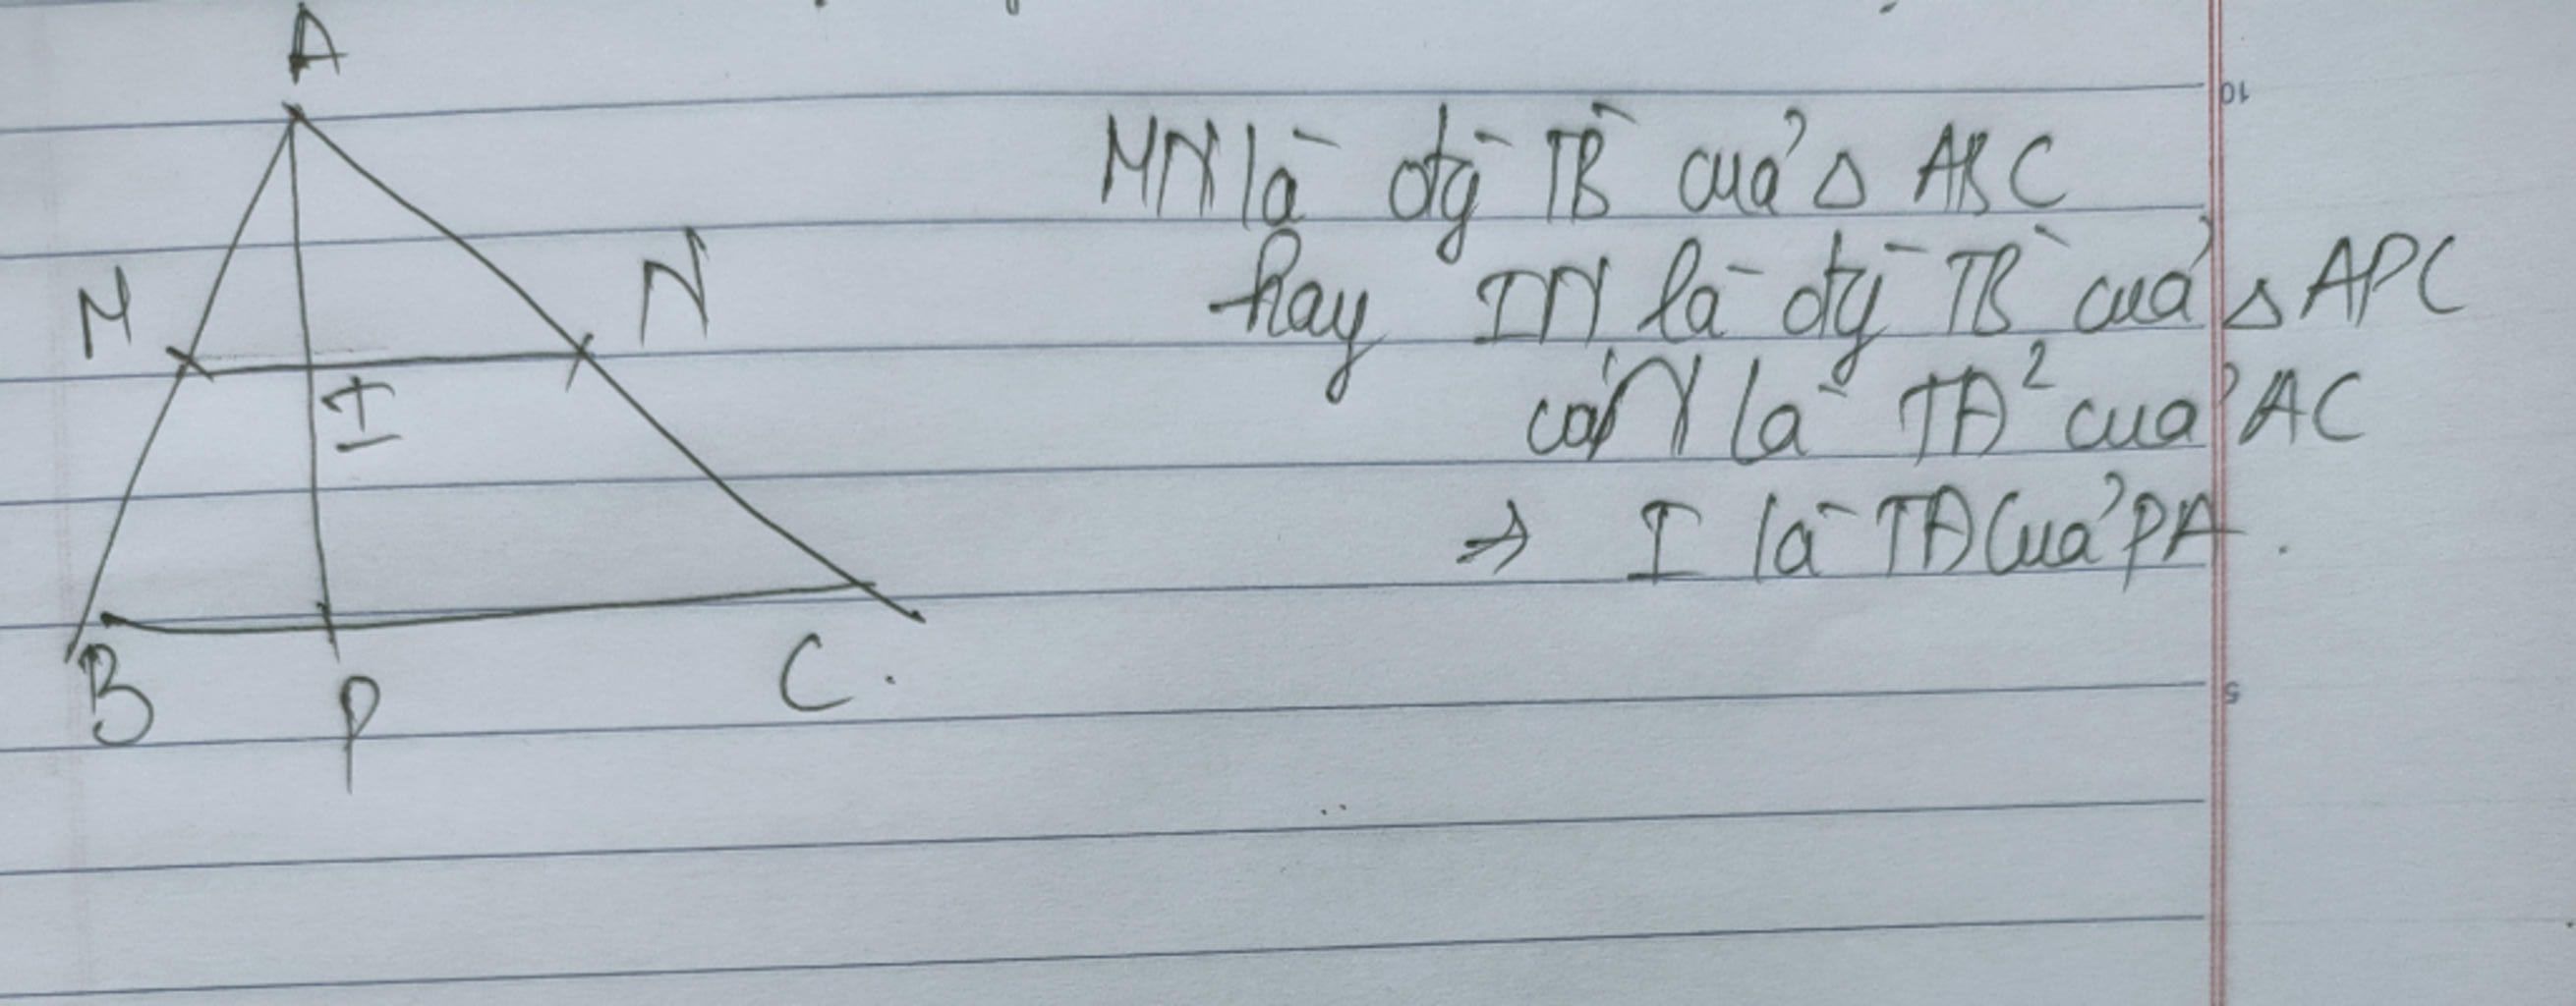 A
M
N
I
B
P
C.
MN là đg TB của Δ ABC
hay IN là đg TB của Δ APC
có N là TĐ² của AC
=> I là TĐ của PA.
10
5